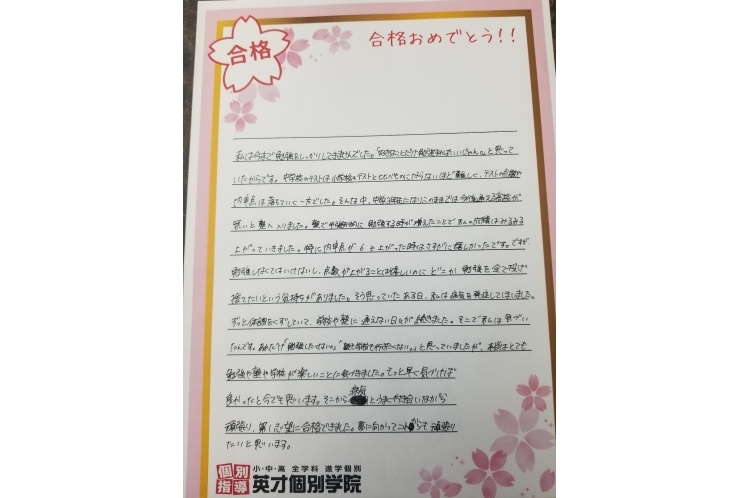 合格
合格おめでとう!!
私は今まで勉強をしっかりしてきませんでした。「好きなことだけ勉強すればいいじゃん。」と思って
いたからです。中学校のテストは小学校のテストとくらべものにならないほど難しく、テストの点数や
内申点は落ちていく一方でした。そんな中、中学3年生になりこのままでは今後通える高校が
無いと塾へ入りました。塾で半強制的に勉強する時が増えたことで私の成績はみるみる
上がっていきました。特に内申点が6も上がった時はさすがに嬉しかったです。ですが
勉強しなくてはいけないし、点数が上がることは嬉しいのにどこか勉強を全て投げ
捨てたいという気持ちがありました。そう思っていたある日、私は病気を発症してしまいました。
ずっと体調をくずしていて、学校や塾に通えない日々が続きました。そこで私は気づい
たんです。あれだけ「勉強したくない。」「塾も学校も行きたくない。」と思っていましたが、本当はとても
勉強や塾や学校が楽しいことに気づきました。もっと早く気づけば
良かったと今でも思います。そこから病気とうまくやき合いながら
頑張り、第1志望に合格できました。夢に向かってこれからも頑張り
たいと思います。
個別指導 小・中・高 全学科 進学個別
英才個別学院